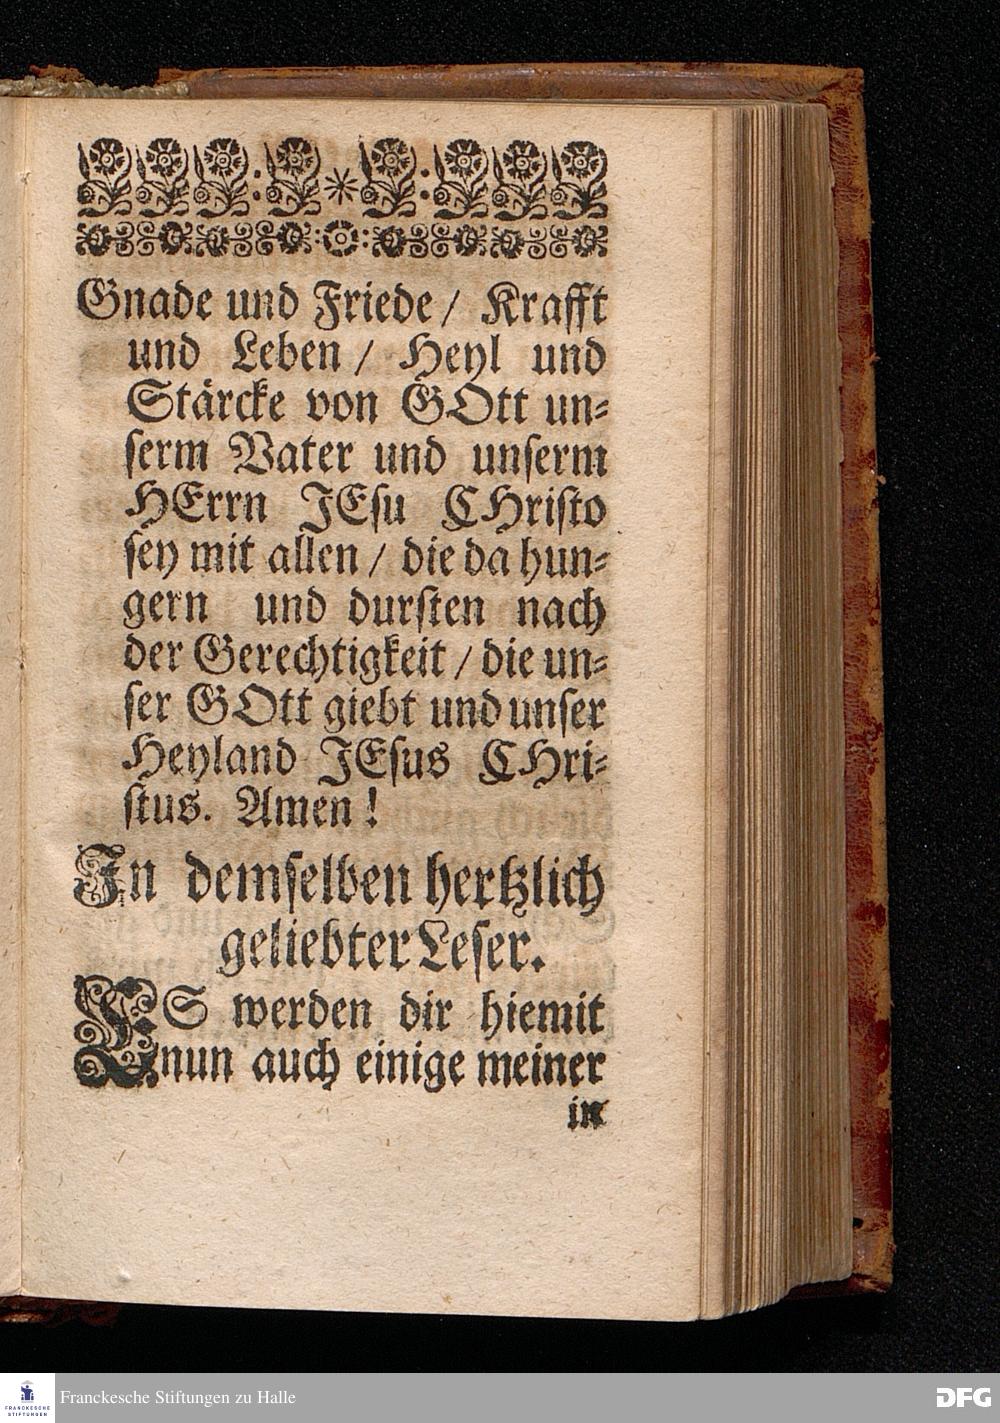 Gnade und Friede / Krafft
und Leben / Heyl und
Stärcke von GOtt un-
serm Vater und unserm
HErrn JEsu CHristo
sey mit allen / die da hun-
gern und dursten nach
der Gerechtigkeit / die un-
ser GOtt giebt und unser
Heyland JEsus CHri-
stus. Amen!
In demselben hertzlich
geliebter Leser.
ES werden dir hiemit
nun auch einige meiner
in
FRANCKESCHE
STIFTUNGEN
Franckesche Stiftungen zu Halle
DFG